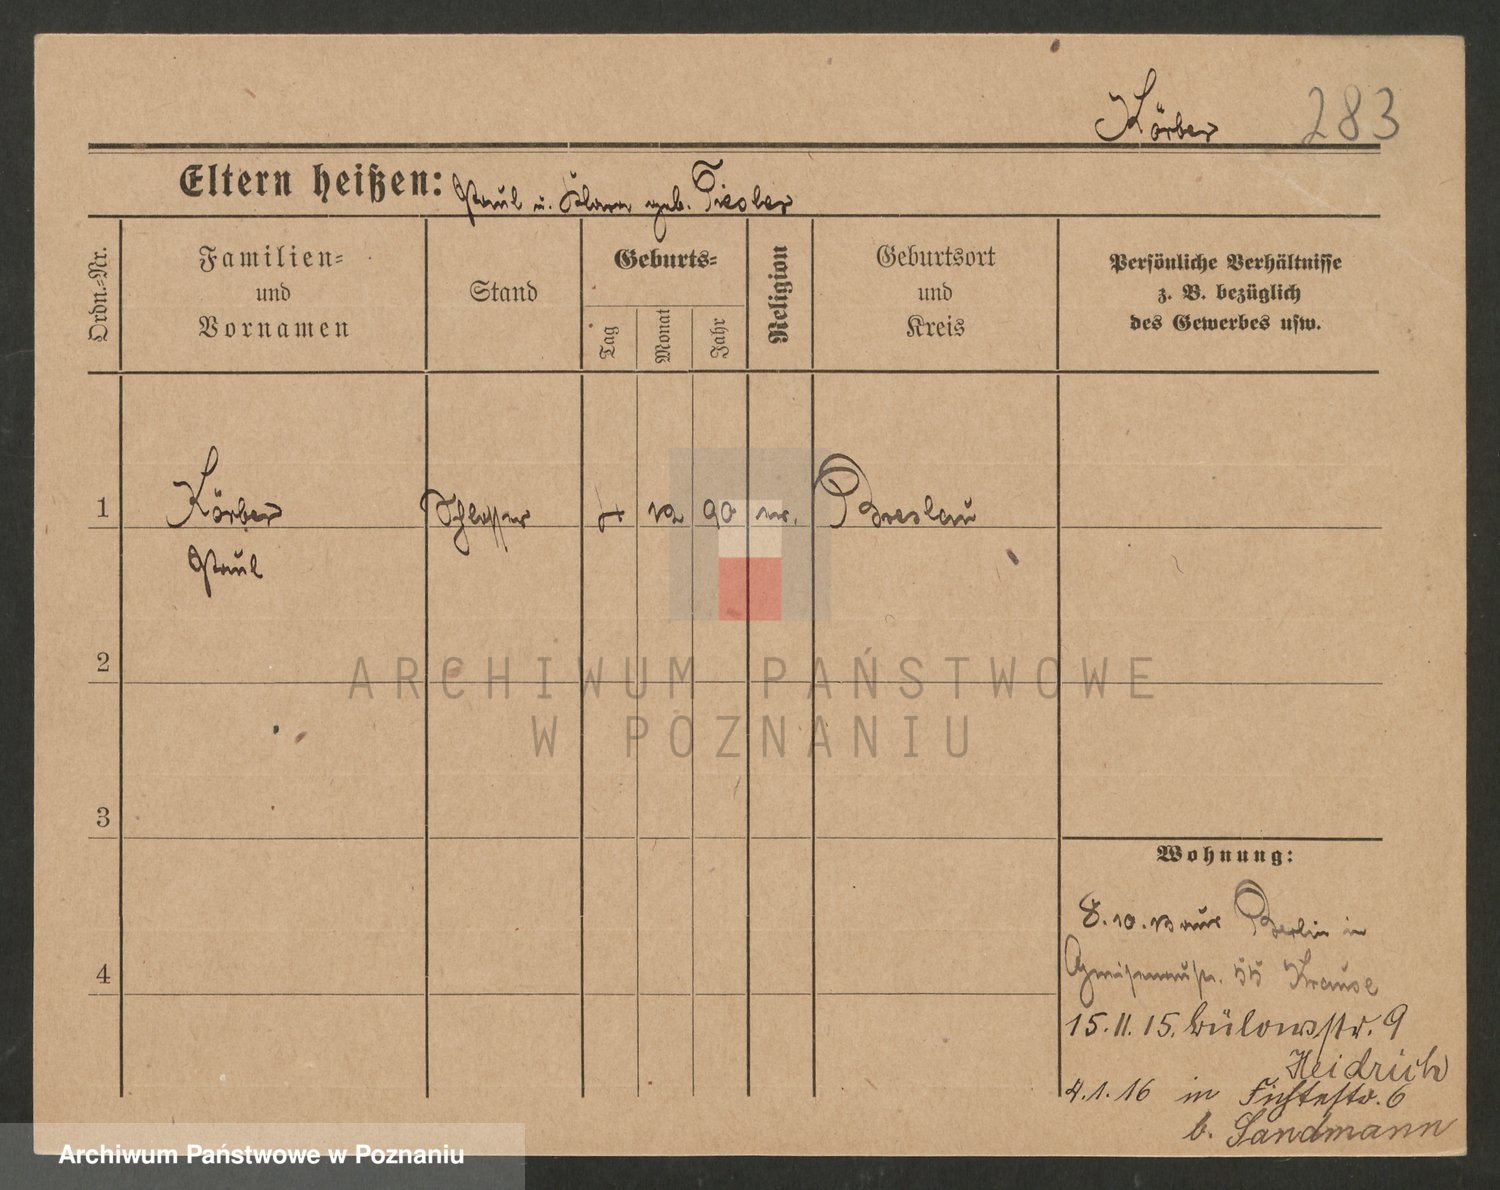 Körber 283
Eltern heißen: Paul u. Klara geb. Tiesler
Ordn.-Nr.
Familien-
und
Vornamen
Stand
Geburts-
Tag
Monat
Jahr
Religion
Geburtsort
und
Kreis
Persönliche Verhältnisse
z. B. bezüglich
des Gewerbes usw.
1 Körber Schlosser 4 12 90 ev. Breslau
Paul
2
3
4
ARCHIWUM PAŃSTWOWE
W POZNANIU
Wohnung:
8.10.13 aus Berlin in
Gneisenaustr. 55 Krause
15.11.15. Bülowstr. 9
Heidrich
4.1.16 in Fichtestr. 6
b. Sandmann
Archiwum Państwowe w Poznaniu